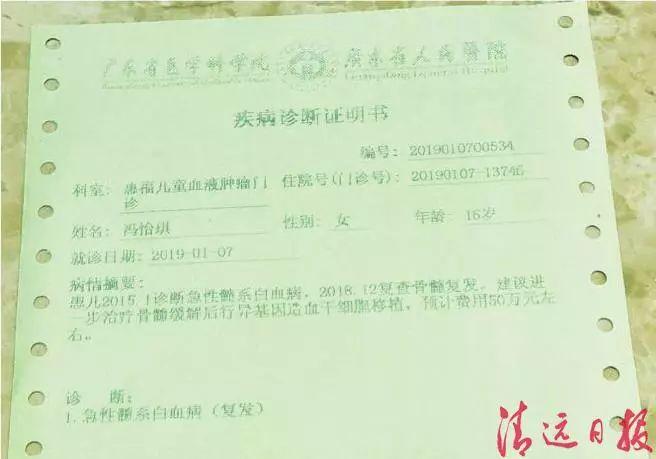 广东省医学科学院 廣東省人民醫院
Guangdong General Hospital
疾病诊断证明书
编号: 2019010700534
科室: 惠福儿童血液肿瘤门诊 住院号(门诊号): 20190107-13746
姓名: 冯怡琪 性别: 女 年龄: 16岁
就诊日期: 2019-01-07
病情摘要:
患儿2015.1诊断急性髓系白血病,2018.12复查骨髓复发,建议进
一步治疗骨髓缓解后行异基因造血干细胞移植,预计费用50万元左
右。
诊 断:
1.急性髓系白血病(复发)
清远日报